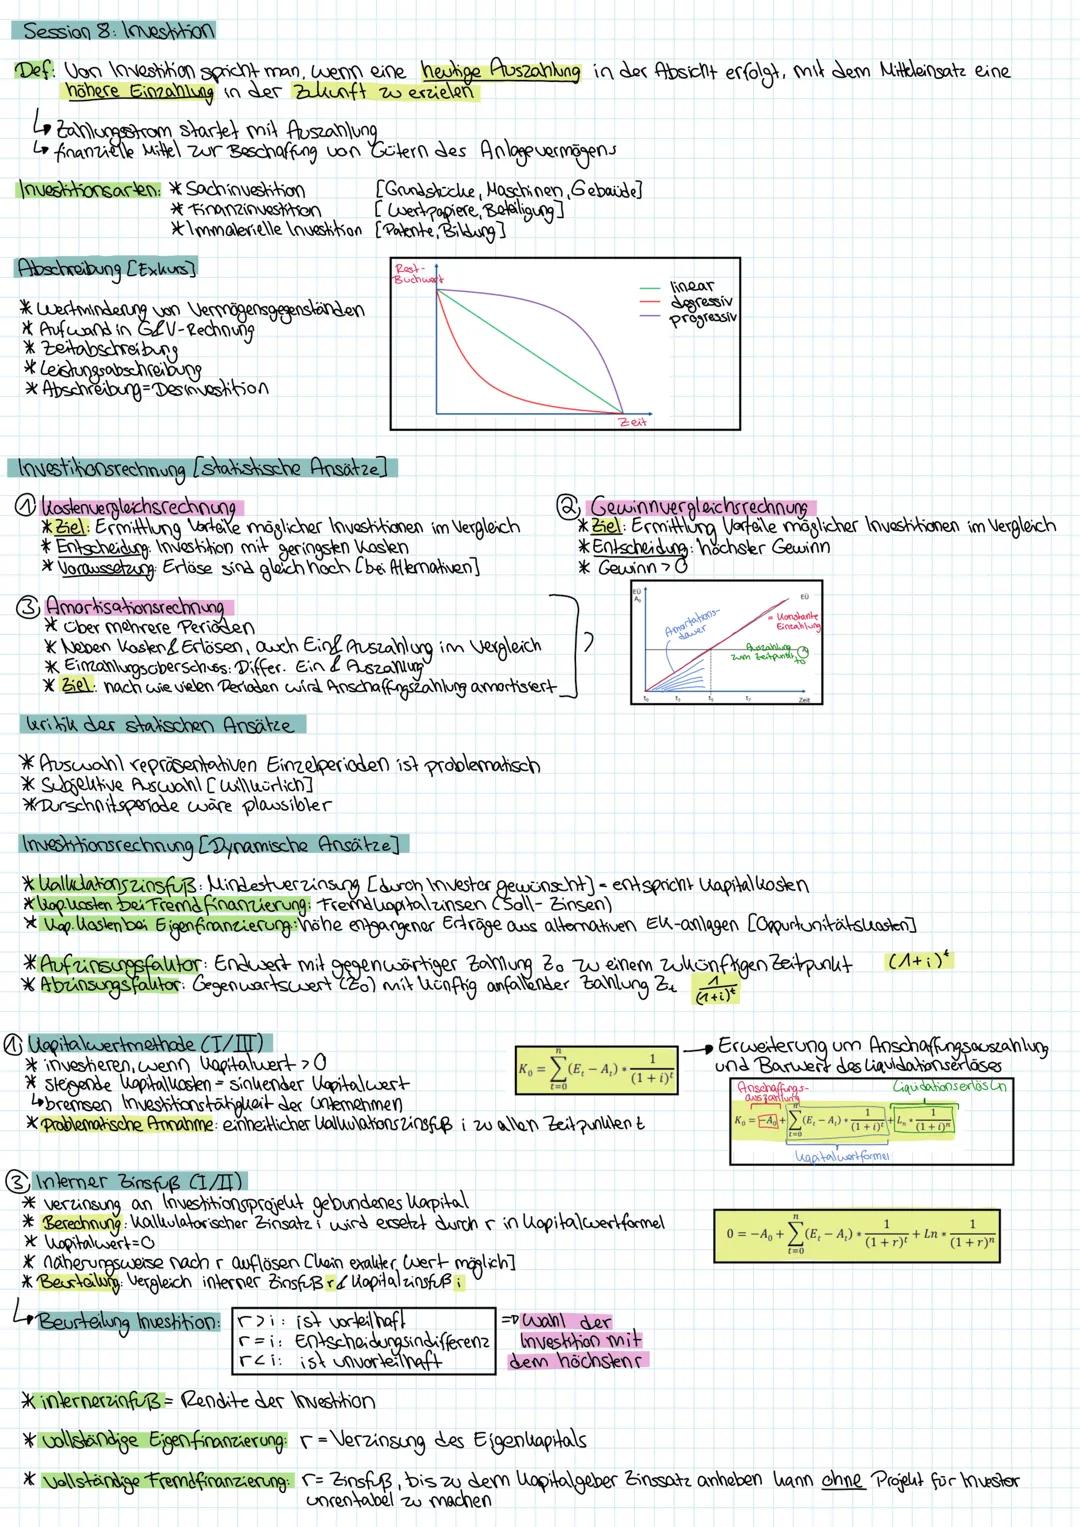 Session 8: Investition
Def: Von Investition spricht man, wenn eine heutige Auszahlung in der Absicht erfolgt, mit dem Mitteleinsatz eine
höhere Einzahlung in der Zukunft zu erzielen
↳ Zahlungsstrom startet mit Auszahlung
↳ finanzielle Mittel zur Beschaffung von Gütern des Anlagevermögens
Investitionsarten: * Sachinvestition [Grundstücke, Maschinen, Gebäude]
* Finanzinvestition [Wertpapiere, Beteiligung]
* Immaterielle Investition [Patente, Bildung]
Abschreibung [Exkurs]
* Wertminderung von Vermögensgegenständen
* Aufwand in G&V-Rechnung
* Zeitabschreibung
* Leistungsabschreibung
* Abschreibung = Desinvestition
Rest-
Buchwert
linear
degressiv
progressiv
Zeit
Investitionsrechnung [statistische Ansätze]
① Kostenvergleichsrechnung
* Ziel: Ermittlung Vorteile möglicher Investitionen im Vergleich
* Entscheidung: Investition mit geringsten Kosten
* Voraussetzung: Erlöse sind gleich hoch [bei Alternativen]
② Gewinnvergleichsrechnung
* Ziel: Ermittlung Vorteile möglicher Investitionen im Vergleich
* Entscheidung: höchster Gewinn
* Gewinn > 0
③ Amortisationsrechnung
* über mehrere Perioden
* Neben Kosten & Erlösen, auch Ein & Auszahlung im Vergleich
* Einzahlungsüberschuss: Differ. Ein & Auszahlung
* Ziel: nach wie vielen Perioden wird Anschaffungszahlung amortisiert
EÜ
A₀
EÜ
Amortations-
dauer
= Konstante
Einzahlung
Auszahlung
zum Zeitpunkt
t₀
t₀
Zeit
Kritik der statischen Ansätze
* Auswahl repräsentativen Einzelperioden ist problematisch
* Subjektive Auswahl [willkürlich]
* Durschnitsperiode wäre plausibler
Investitionsrechnung [Dynamische Ansätze]
* Kalkulationszinsfuß: Mindestverzinsung [durch Investor gewünscht] - entspricht Kapitalkosten
* Kap.kosten bei Fremdfinanzierung: Fremdkapitalzinsen (Soll-Zinsen)
* Kap.kosten bei Eigenfinanzierung: höhe entgangener Erträge aus alternativen EK-anlagen [Oppurtunitätskosten]
* Aufzinsungsfaktor: Endwert mit gegenwärtiger Zahlung Z₀ zu einem zukünftigen Zeitpunkt (1+i)ᵗ
* Abzinsungsfaktor: Gegenwartswert (Z₀) mit künftig anfallender Zahlung Zₜ 1/(1+i)ᵗ
① Kapitalwertmethode (I/III)
* investieren, wenn Kapitalwert > 0
* steigende Kapitalkosten = sinkender Kapitalwert
↳ bremsen Investitionstätigkeit der Unternehmen
* Problematische Annahme: einheitlicher Kalkulationszinsfuß i zu allen Zeitpunkten t
K₀ = n ∑ t=0 (Eₜ − Aₜ) * 1/(1+i)ᵗ
→ Erweiterung um Anschaffungsauszahlung
und Barwert des Liquidationserlöses
Anschaffungs-
auszahlung
Liquidationserlös Ln
K₀ = −A₀ + n ∑ t=0 (Eₜ − Aₜ) * 1/(1+i)ᵗ + Lₙ * 1/(1+i)ⁿ
Kapitalwertformel
③ Interner Zinsfuß (I/II)
* verzinsung an Investitionsprojekt gebundenes Kapital
* Berechnung: Kalkulatorischer Zinsatz i wird ersetzt durch r in Kapitalwertformel
* Kapitalwert = 0
* näherungsweise nach r auflösen [kein exakter Wert möglich]
* Beurteilung: Vergleich interner Zinsfuß r & Kapitalzinsfuß i
0 = −A₀ + n ∑ t=0 (Eₜ − Aₜ) * 1/(1+r)ᵗ + Ln * 1/(1+r)ⁿ
↳ Beurteilung Investition: r > i: ist vorteilhaft
r = i: Entscheidungsindifferenz
r < i: ist unvorteilhaft
⇒ Wahl der
Investition mit
dem höchsten r
* internerzinfuß = Rendite der Investition
* vollständige Eigenfinanzierung: r = Verzinsung des Eigenkapitals
* vollständige Fremdfinanzierung: r = Zinsfuß, bis zu dem Kapitalgeber Zinssatz anheben kann ohne Projekt für Investor
unrentabel zu machen